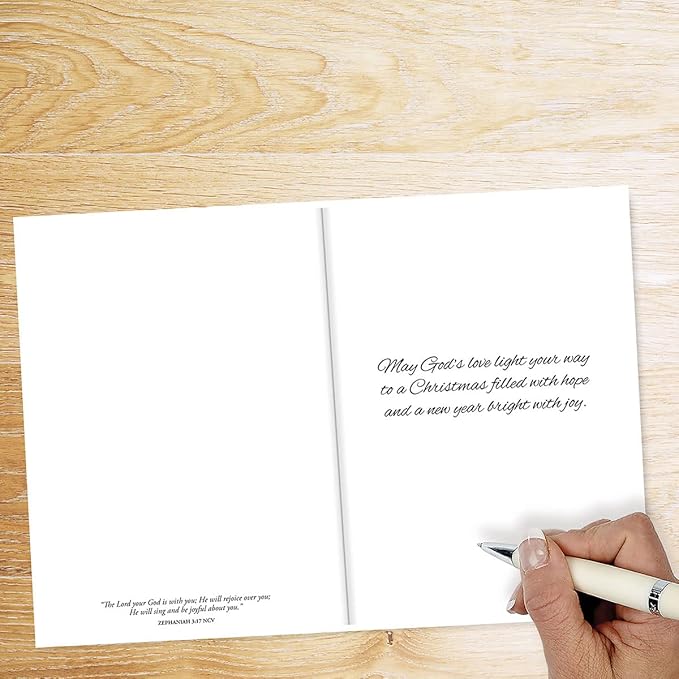 "The Lord your God is with you; He will rejoice over you;
He will sing and be joyful about you."
ZEPHANIAH 3:17 NCV
May God's love light your way
to a Christmas filled with hope
and a new year bright with joy.